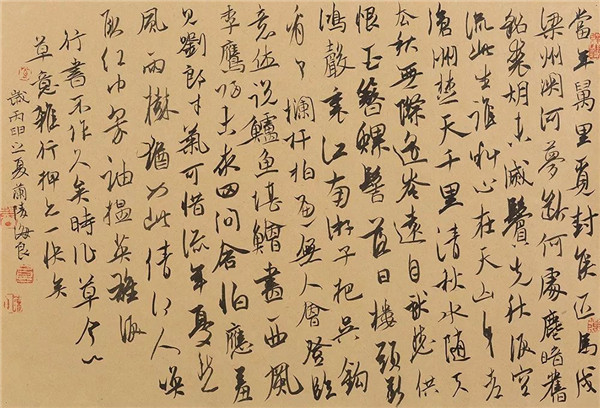 當年萬里覓封侯匹馬戍
梁州關河夢斷何處塵暗舊
貂裘胡未滅鬢先秋淚空
流此生誰料心在天山身老
滄洲楚天千里清秋水隨天
去秋無際遙岑遠目獻愁供
恨玉簪螺髻落日樓頭斷
鴻聲裏江南游子把吳鉤
看了欄杆拍遍無人會登臨
意休說鱸魚堪鱠盡西風
季鷹歸未求田問舍怕應羞
見劉郎才氣可惜流年憂愁
風雨樹猶如此倩何人喚
取紅巾翠袖搵英雄淚
行書不作久矣時作草今以
草意雜行押之一快矣
歲丙申之夏蘭陵海良